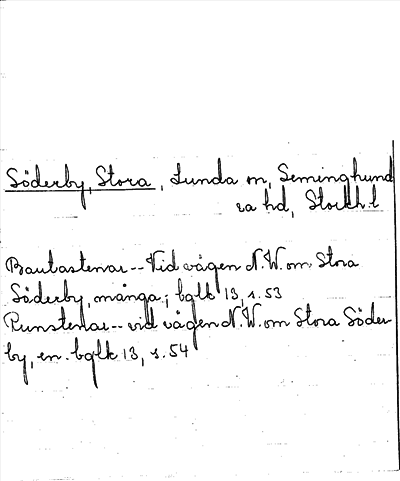 Söderby, Stora, Lunda m, Seminghund
ra hd, Stockh.l
Bautastenar -- Vid vägen N.W. om Stora
Söderby, många; bglk 13, s. 53
Runstenar -- vid vägen N.W. om Stora Söder-
by, en. bglk 13, s. 54